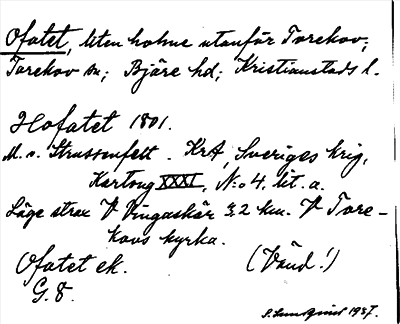 Ofatet, liten holme utanför Torekov;
Torekov sn; Bjäre hd; Kristianstads l.
Hofatet 1801.
M. v. Strussenfelt. KrA, Sveriges krig,
Kartong XXXI, N:o 4, lit. a.
Läge strax V Vingaskär 3,2 km. V Tore-
kovs kyrka.
Ofatet ek. (Vänd!)
G. 8.
S. Lundquist 1937.